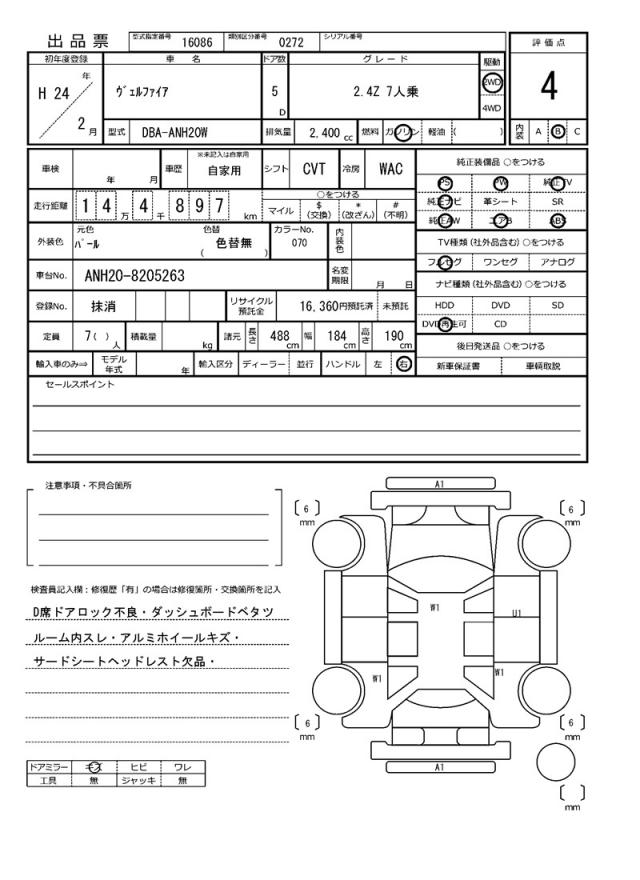 出品票
型式指定番号 16086 類別区分番号 0272 シリアル番号
評価点
初年度登録 車名 ドア数 グレード 駆動
H 24 年 2 月
ヴェルファイア
5 D
2.4Z 7人乗
2WD
4WD
4
型式 DBA-ANH20W 排気量 2,400 cc 燃料 ガソリン 軽油 ( )
内装 A B C
車検 年 月 車歴 ※未記入は自家用 自家用 シフト CVT 冷房 WAC
純正装備品 ○をつける
PS PW 純正TV
純正ナビ 革シート SR
純正AW エアB ABS
走行距離 1 4 万 4 千 8 9 7 km
○をつける
マイル $(交換) *(改ざん) #(不明)
TV種類(社外品含む)○をつける
フルセグ ワンセグ アナログ
外装色 元色 パール 色替 ( 色替無 ) カラーNo. 070 内装色
車台No. ANH20-8205263 名変期限 月 日
ナビ種類(社外品含む)○をつける
HDD DVD SD
DVD再生可 CD
登録No. 抹消 リサイクル預託金 16,360円預託済 未預託
定員 7( )人 積載量 kg 諸元 長さ 488cm 幅 184cm 高さ 190cm
後日発送品 ○をつける
新車保証書 車輌取説
輸入車のみ⇒ モデル年式 年 輸入区分 ディーラー 並行 ハンドル 左 右
セールスポイント
注意事項・不具合箇所
検査員記入欄:修復歴「有」の場合は修復箇所・交換箇所を記入
D席ドアロック不良・ダッシュボードベタツ
ルーム内スレ・アルミホイールキズ・
サードシートヘッドレスト欠品・
ドアミラー キズ ヒビ ワレ
工具 無 ジャッキ 無
A1
6 mm
6 mm
W1
U1
W1
W1
6 mm
6 mm
A1
mm